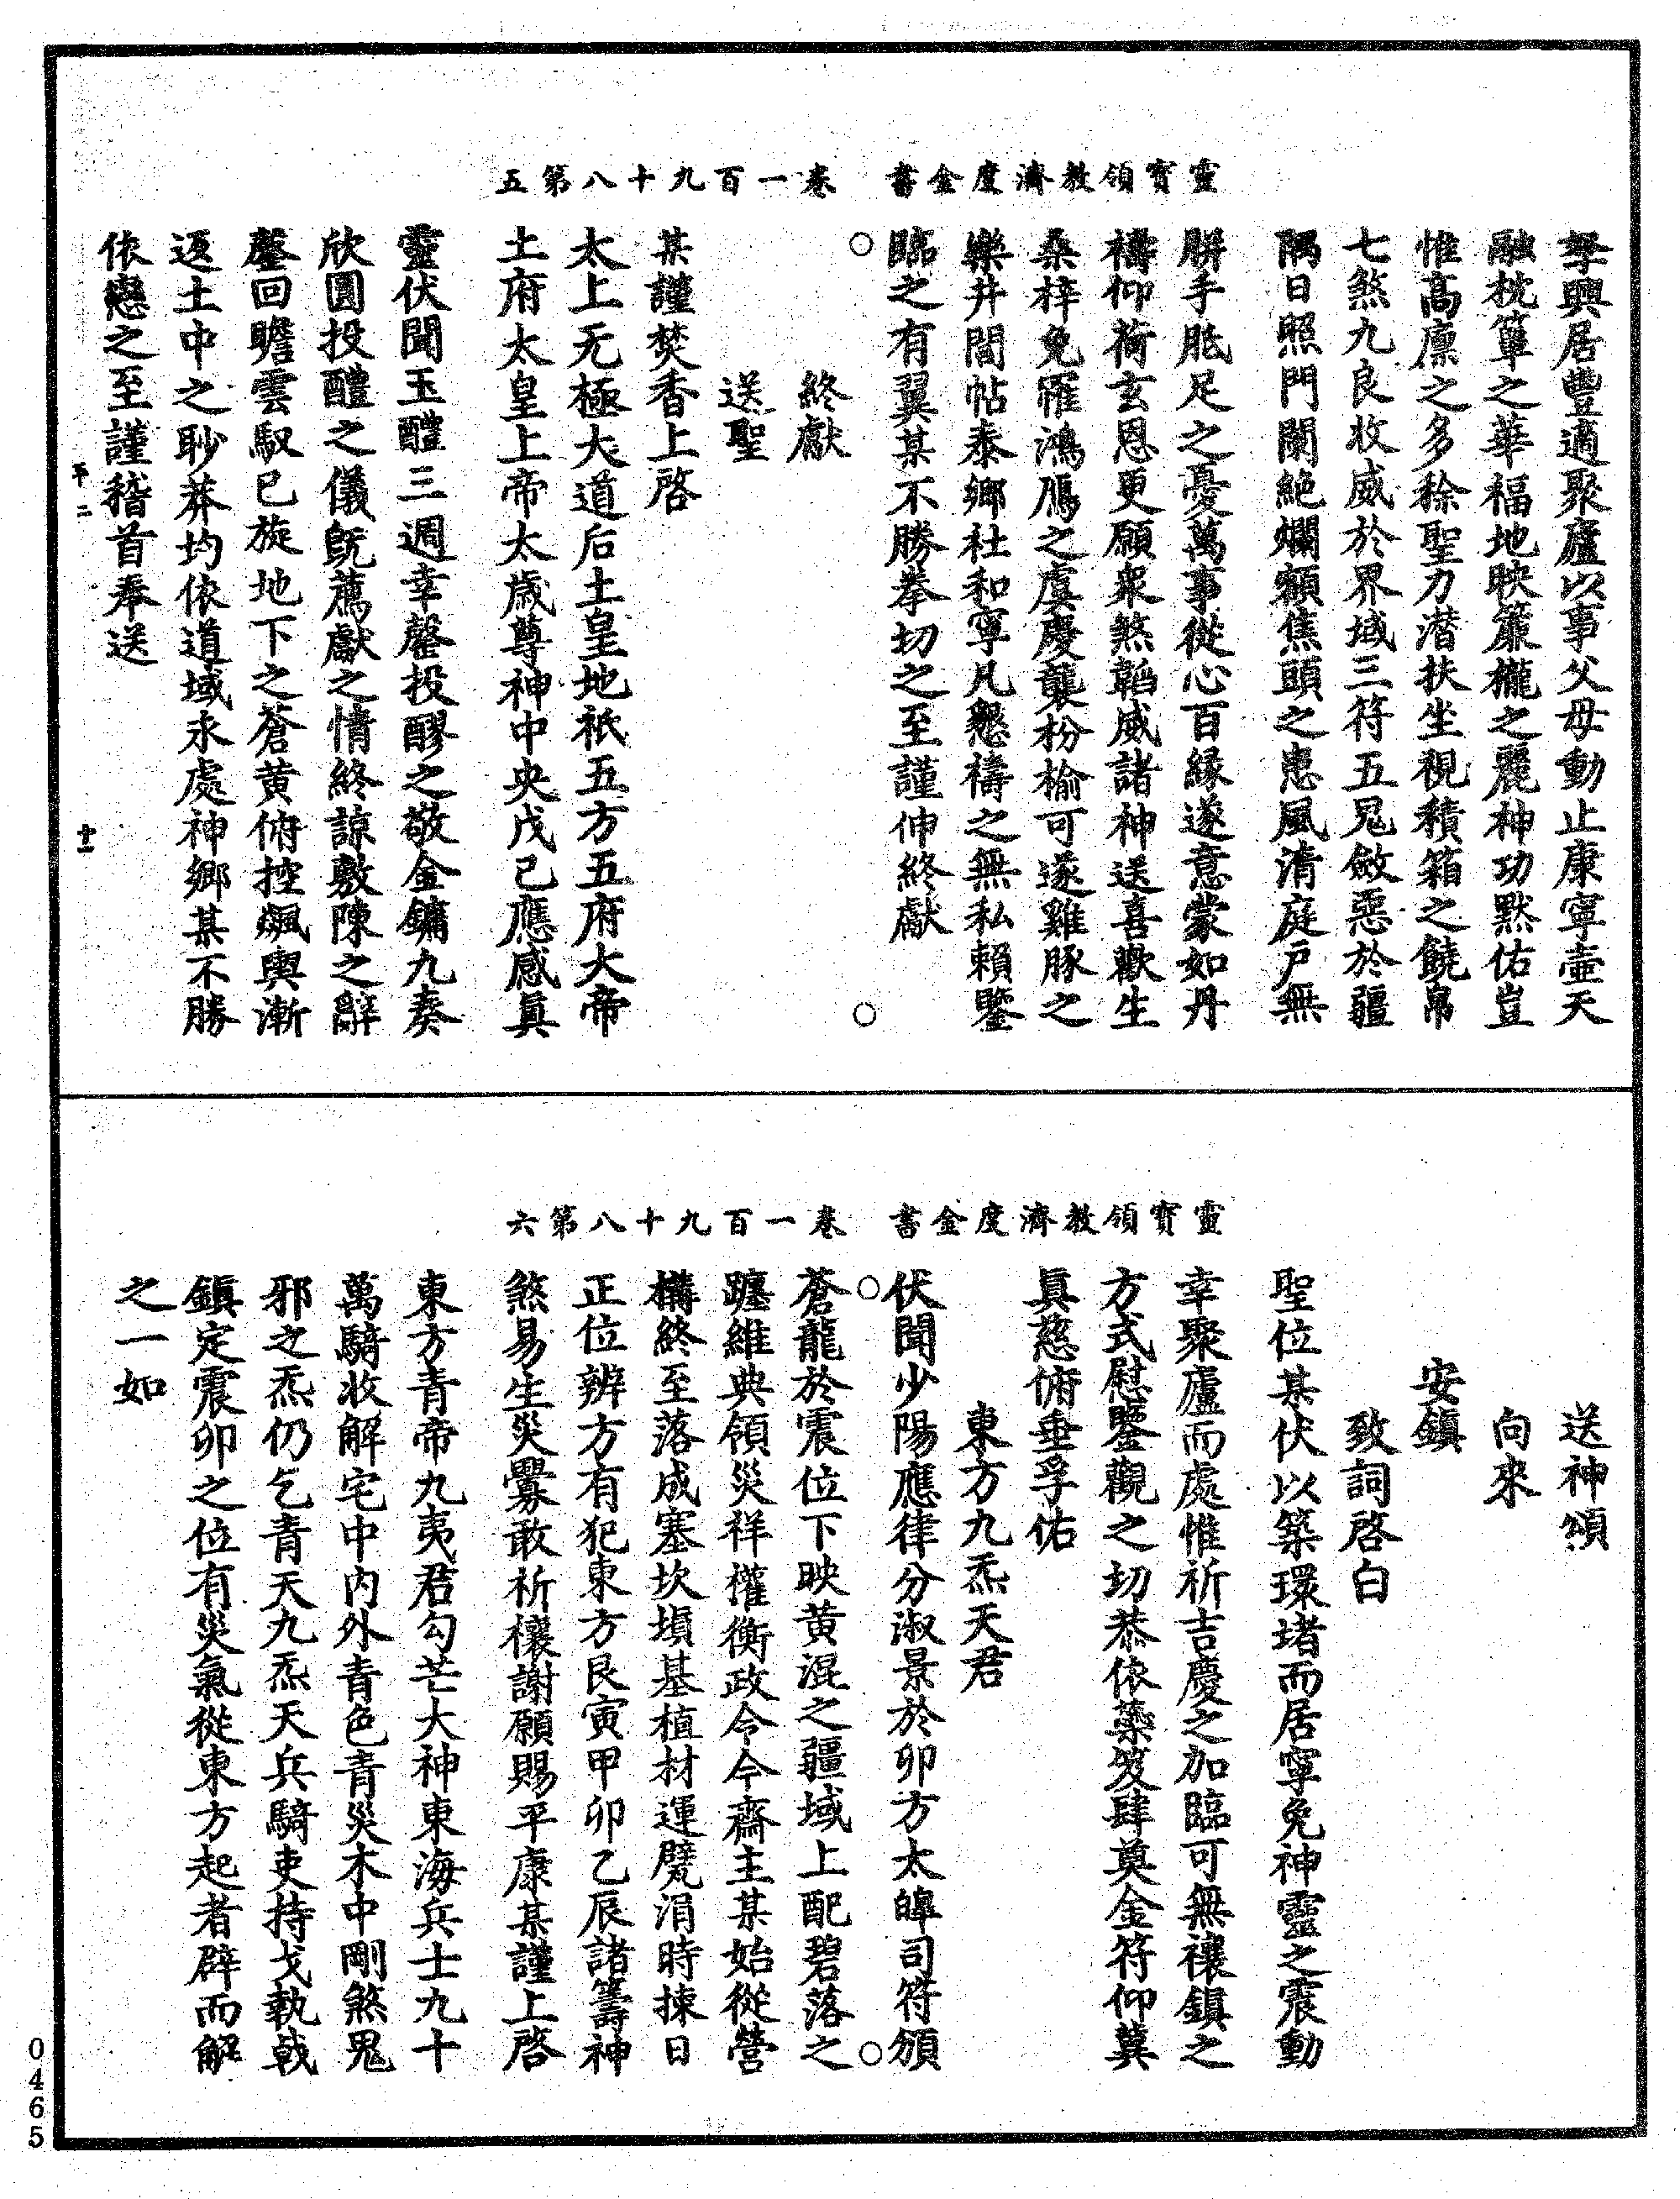 靈寶領教濟度金書　卷一百九十八第五
孥興居豐適聚廬以事父母動止康寧壺天
融枕簟之華福地映簾櫳之麗神功默佑豈
惟高廪之多稌聖力潜扶坐視積箱之饒帛
七煞九良收威於界域三符五鬼斂惡於疆
隅日照門闌絶爛額焦頭之患風清庭戶無
胼手胝足之憂萬事從心百縁遂意蒙如丹
禱仰荷玄恩更願衆煞韜威諸神送喜歡生
桑梓免罹鴻鴈之虞慶襲枌榆可遂雞豚之
樂井閭帖泰鄉社和寧凡懇禱之無私賴鑒
臨之有翼某不勝拳切之至謹伸終獻
○　○
終獻
送聖
某謹焚香上啓
太上无極大道后土皇地祇五方五府大帝
土府太皇上帝太歲尊神中央戊己應感眞
靈伏聞玉醴三週幸罄投醪之敬金鏞九奏
欣圓投醴之儀旣薦獻之情終諒敷陳之辭
罄回瞻雲馭已旋地下之蒼黃俯控飆輿漸
返土中之眇莽均依道域永處神鄉某不勝
依戀之至謹稽首奉送
不二　十一
靈寶領教濟度金書　卷一百九十八第六
送神頌
向來
安鎮
致詞啓白
聖位某伏以築環堵而居寧免神靈之震動
幸聚廬而處惟祈吉慶之加臨可無禳鎮之
方式慰鑒觀之切恭依蘂笈肆奠金符仰冀
眞慈俯垂孚佑
東方九炁天君
伏聞少陽應律分淑景於卯方太皥司符頒
○　○
蒼龍於震位下映黃混之疆域上配碧落之
躔維典領災祥權衡政令今齋主某始從營
構終至落成塞坎塤基植材運甓涓時揀日
正位辨方有犯東方艮寅甲卯乙辰諸籌神
煞易生災釁敢祈禳謝願賜平康某謹上啓
東方青帝九夷君勾芒大神東海兵士九十
萬騎收解宅中内外青色青災木中剛煞鬼
邪之炁仍乞青天九炁天兵騎吏持戈執戟
鎮定震卯之位有災氣從東方起者辟而解
之一如
0465